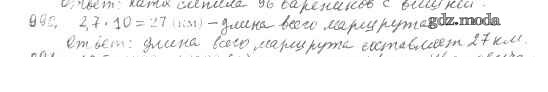 Ответ: Катя слепила 96 вареников с вишней.
992. 2,7 · 10 = 27 (км) – длина всего маршрута
gdz.moda
Ответ: длина всего маршрута составляет 27 км.